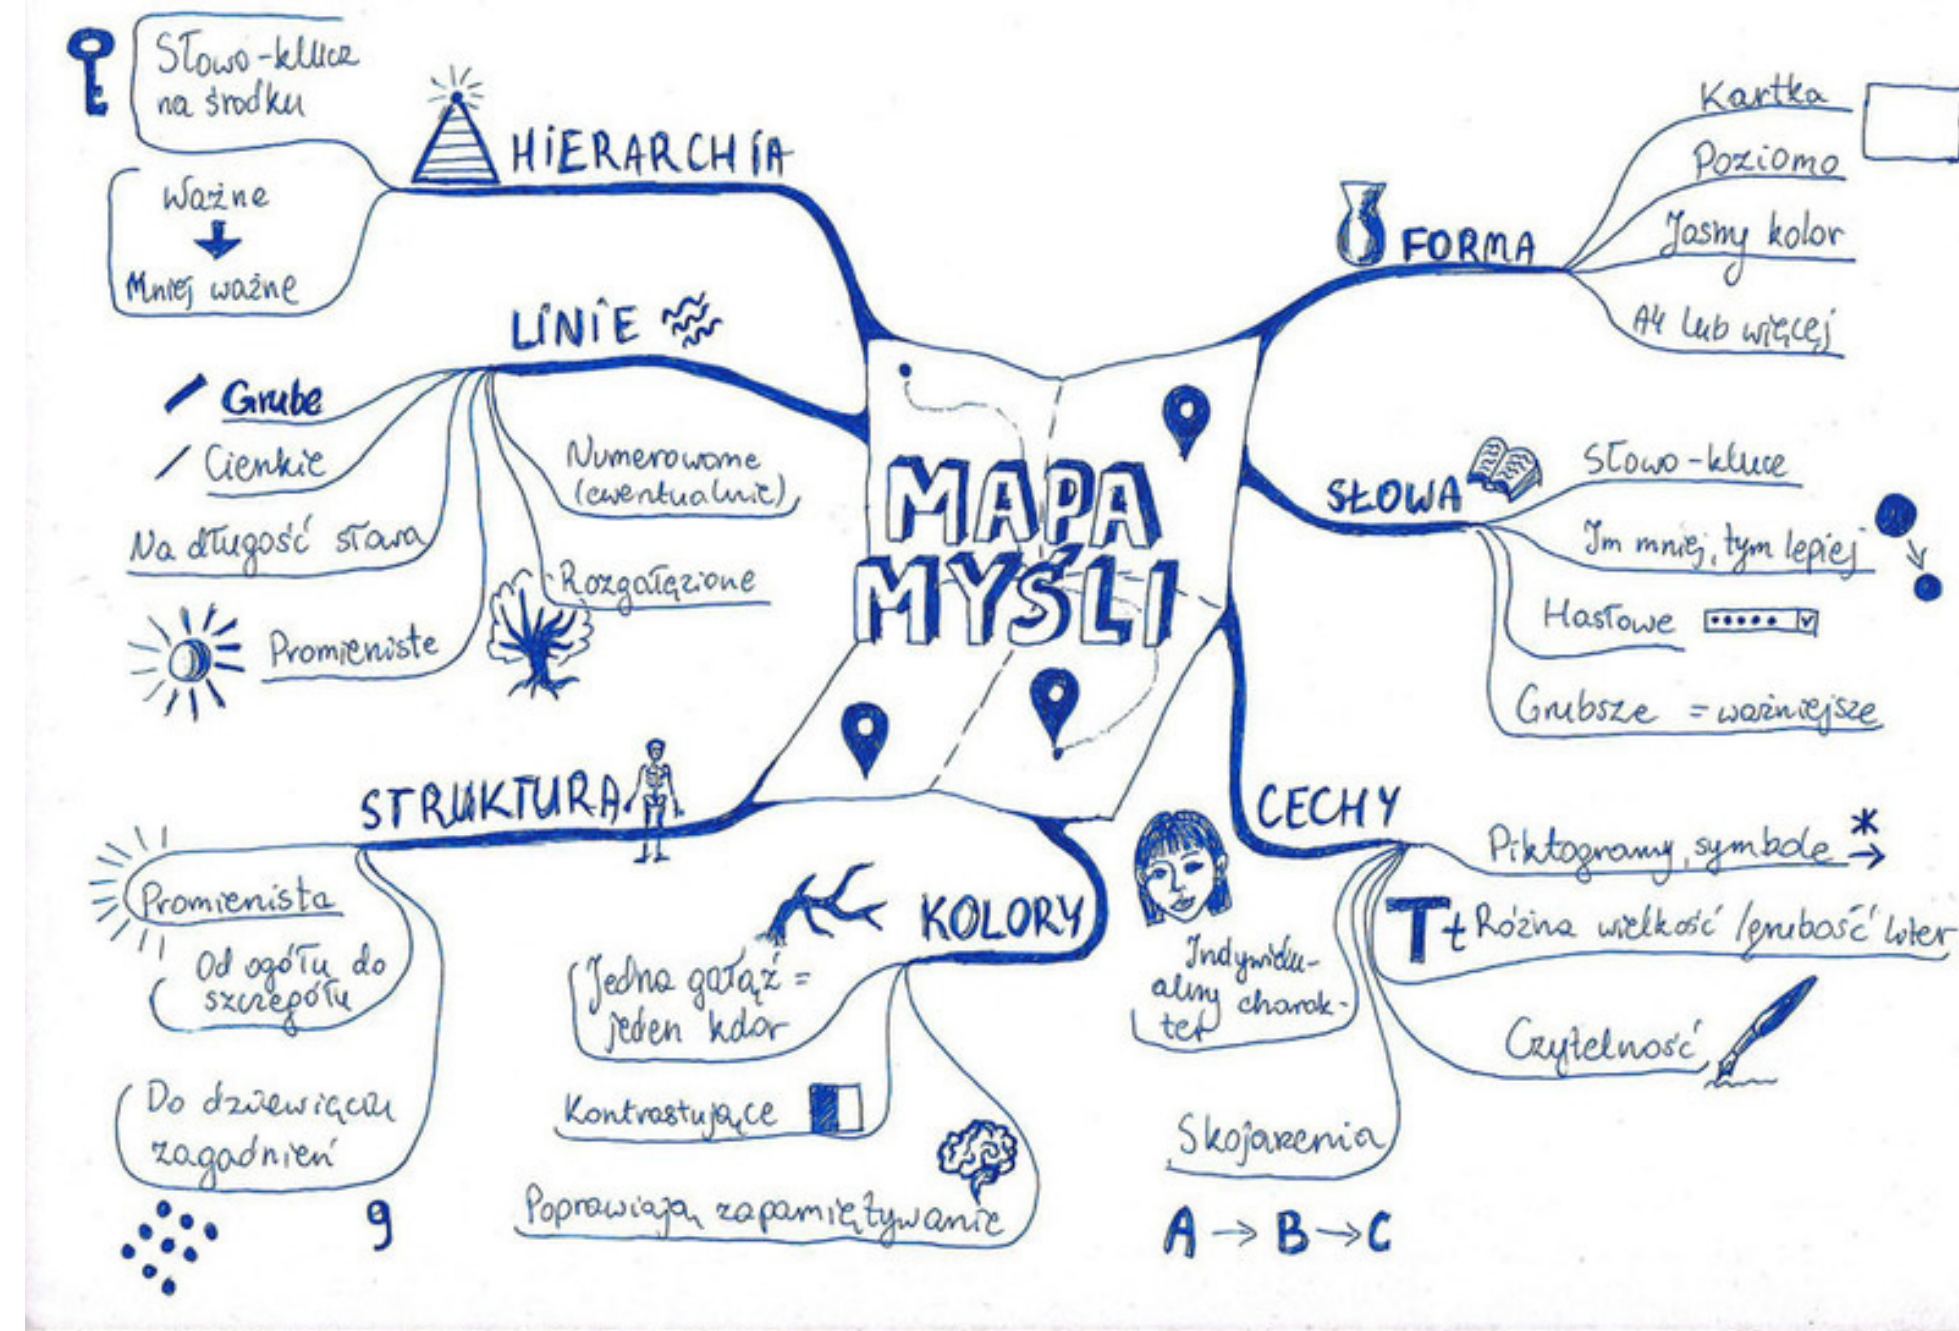 MAPA
MYŚLI
HIERARCHIA
Słowo-klucz
na środku
Ważne
Mniej ważne
LINIE
Grube
Cienkie
Na długość słowa
Promieniste
Numerowane
(ewentualnie)
Rozgałęzione
STRUKTURA
Promienista
Od ogółu do
szczegółu
Do dziewięciu
zagadnień
9
KOLORY
Jedna gałąź =
jeden kolor
Kontrastujące
Poprawiają zapamiętywanie
FORMA
Kartka
Poziomo
Jasny kolor
A4 lub więcej
SŁOWA
Słowo-klucz
Im mniej, tym lepiej
Hasłowe
Grubsze = ważniejsze
CECHY
Piktogramy, symbole
* →
T t Różna wielkość / grubość liter
Czytelność
Indywidu-
alny charak-
ter
Skojarzenia
A → B → C